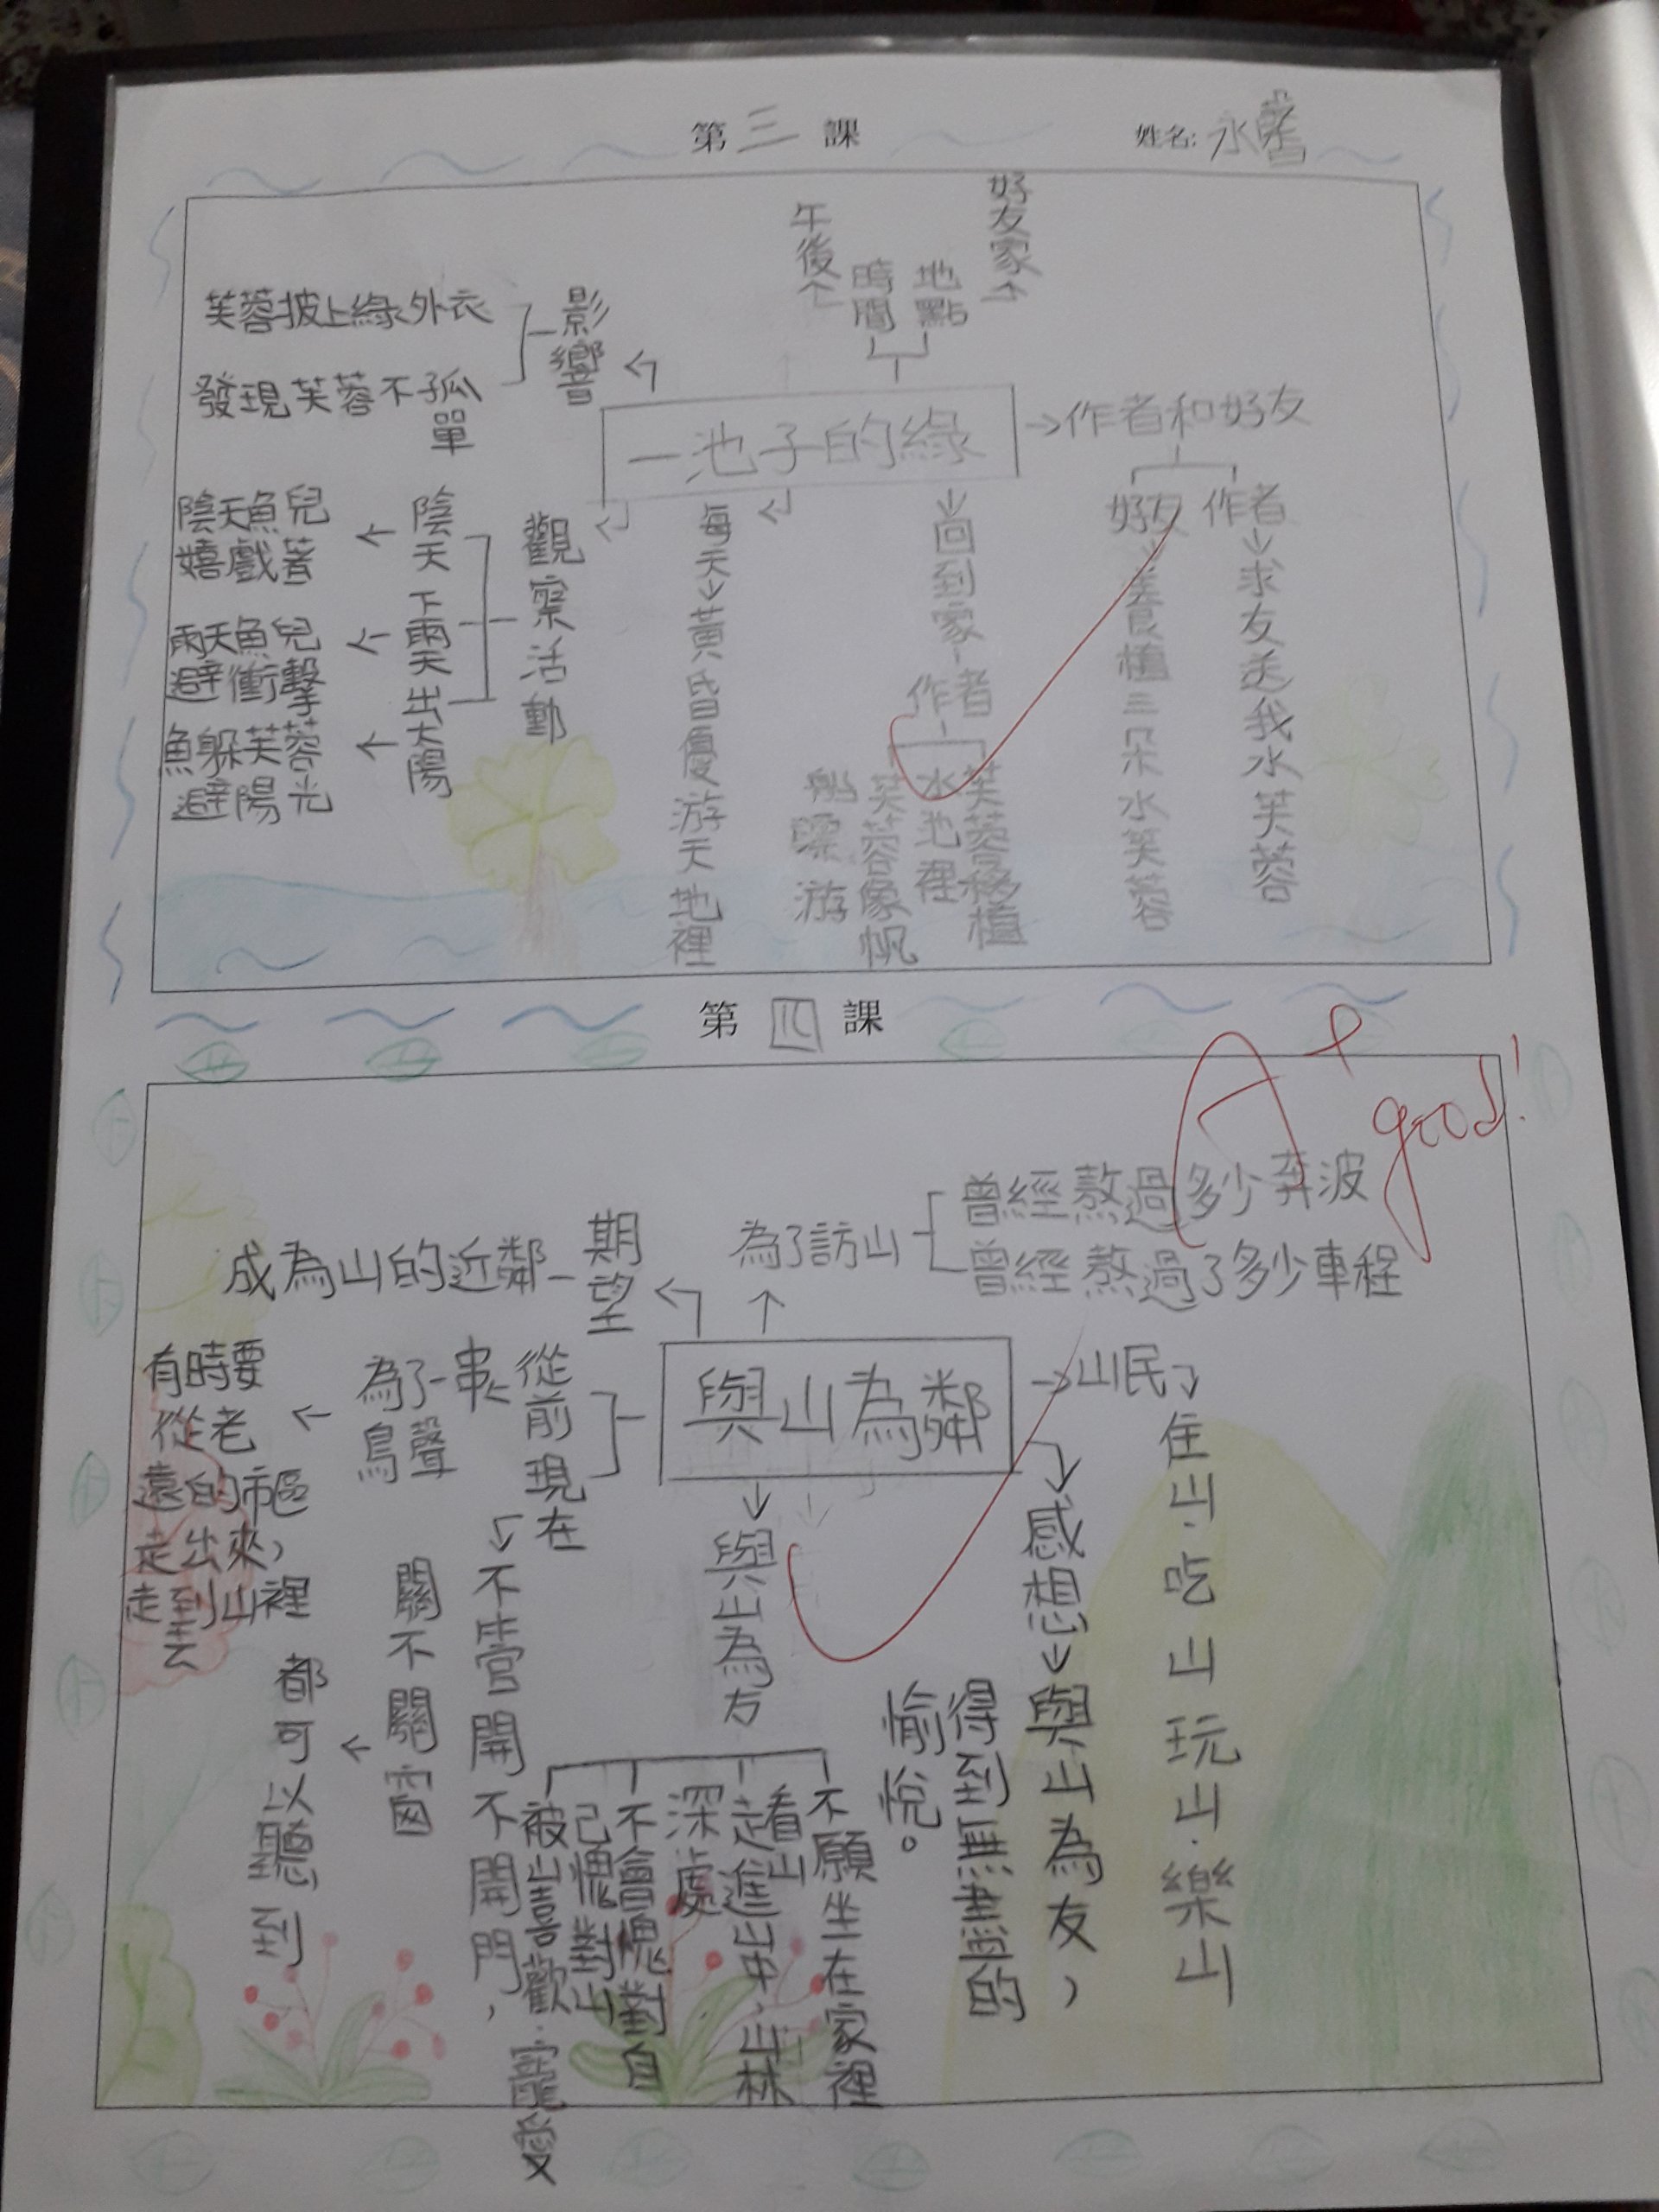 第三課
姓名:永
好友家
午後
時間
地點
影響
芙蓉披上綠外衣
發現芙蓉不孤單
一池子的綠
作者和好友
作者
求友送我水芙蓉
好友
養植三朵水芙蓉
回到家
作者
芙蓉移植
水池裡
芙蓉像帆
船漂游
每天
黃昏優游天地裡
觀察活動
陰天
陰天魚兒
嬉戲著
下雨天
雨天魚兒
避衝擊
出太陽
魚躲芙蓉
避陽光
第四課
A+
good!
為了訪山
曾經熬過多少奔波
曾經熬過了多少車程
期望
成為山的近鄰
與山為鄰
山民
住山.吃山玩山.樂山
感想
與山為友,
得到無盡的
愉悅。
與山為方
不願坐在家裡
看山
走進山中,山林
深處
不會愧對自
己愧對山
被山喜歡.寵愛
從前
為了一串
鳥聲
有時要
從老
遠的市區
走出來,
走到山裡
去
現在
不管開不開門,
關不關窗
都可以聽到